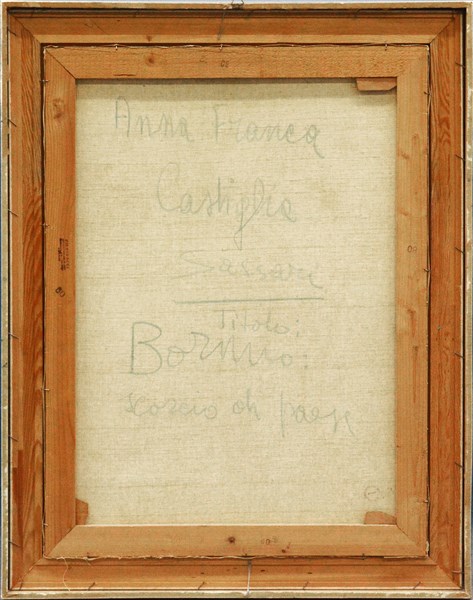 Anna Franca
Castiglia
Sassari
Titolo:
Bormio:
scorcio di paese